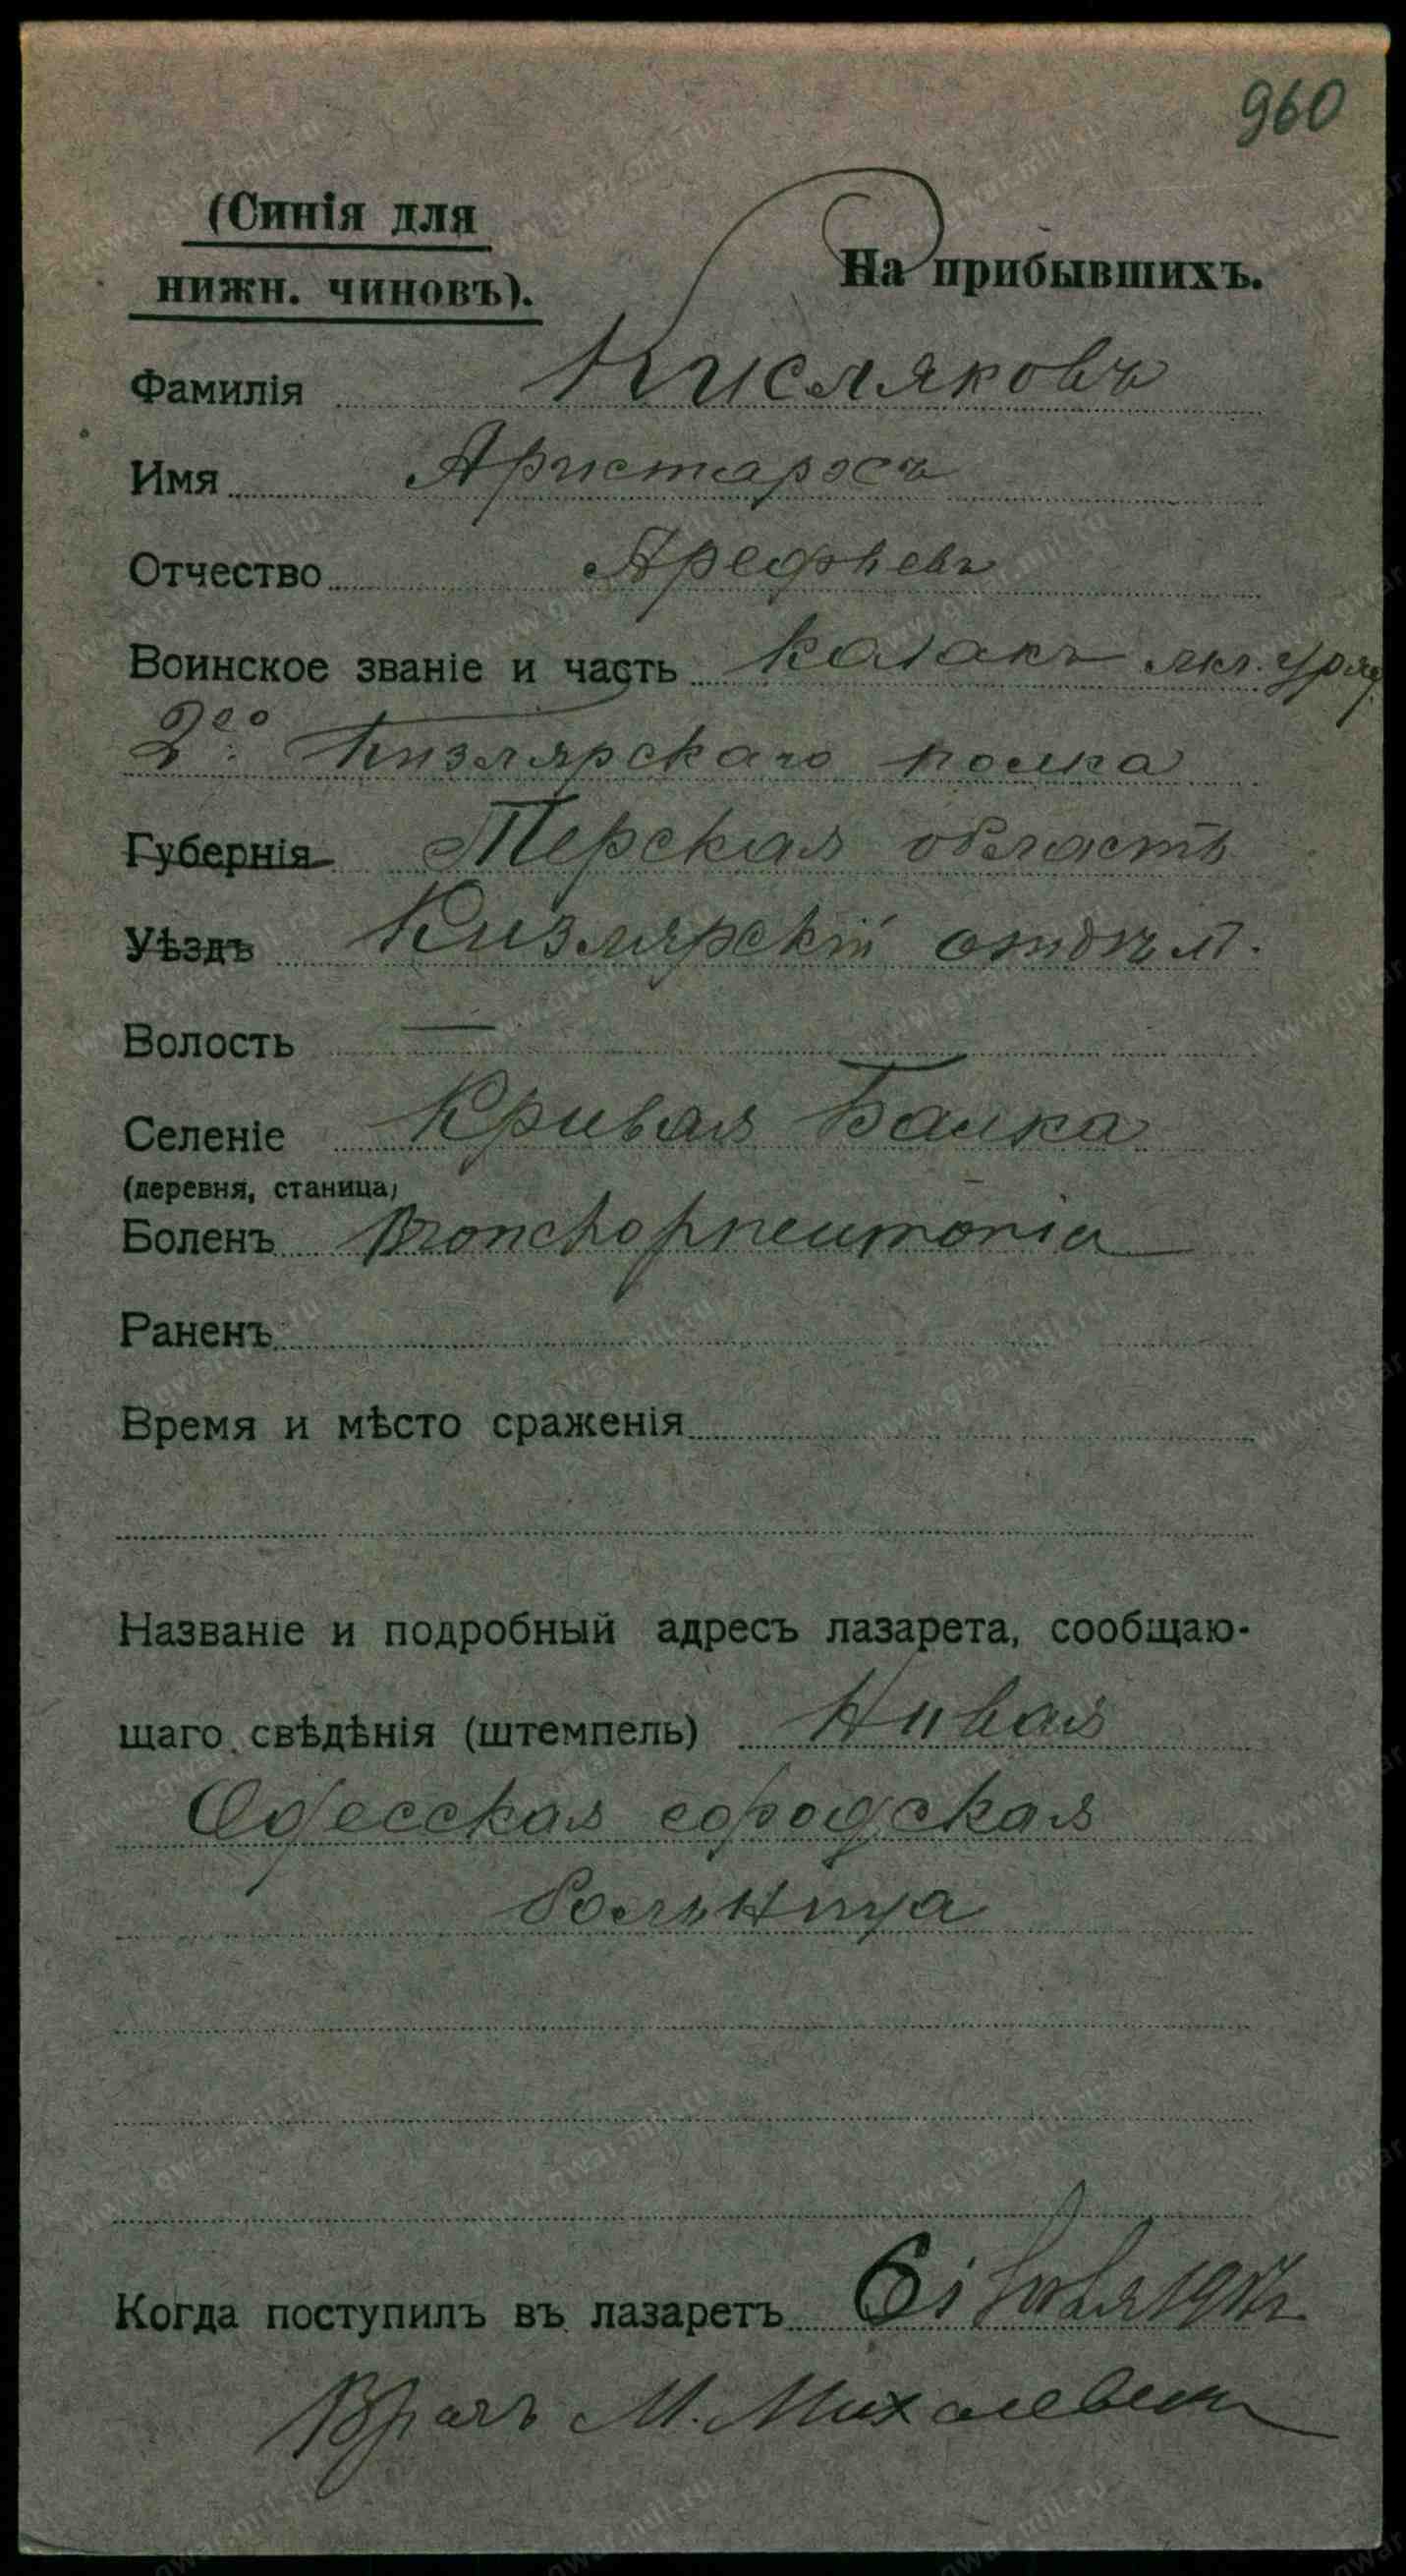 960
(Синія для
нижн. чиновъ).
На прибывшихъ.
Фамилія Кисляковъ
Имя Аристархъ
Отчество Арефьевъ
Воинское званіе и часть казакъ мл. уряд.
2го Кизлярскаго полка
Губернія Терская область
Уѣздъ Кизлярскій отдѣл.
Волость —
Селеніе Кривая Балка
(деревня, станица)
Боленъ Bronchopneumonia
Раненъ
Время и мѣсто сраженія
Названіе и подробный адресъ лазарета, сообщаю-
щаго свѣдѣнія (штемпель) Новая
Одесская городская
больница
Когда поступилъ въ лазаретъ 6
Врачъ М. Михалевич